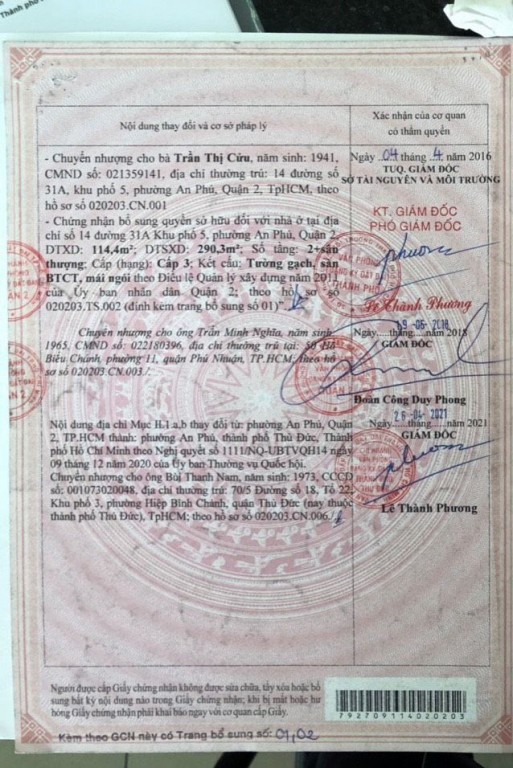 Thành phố
Nội dung thay đổi và cơ sở pháp lý
Xác nhận của cơ quan
có thẩm quyền
- Chuyển nhượng cho bà Trần Thị Cửu, năm sinh: 1941,
CMND số: 021359141, địa chỉ thường trú: 14 đường số
31A, khu phố 5, phường An Phú, Quận 2, TpHCM, theo
hồ sơ 020203.CN.001
- Chứng nhận bổ sung quyền sở hữu đối với nhà ở tại địa
chỉ số 14 đường 31A Khu phố 5, phường An Phú, Quận 2,
DTXD: 114,4m²; DTSXD: 290,3m²; Số tầng: 2+sân
thượng; Cấp (hạng): Cấp 3; Kết cấu: Tường gạch, sàn
BTCT, mái ngói theo Điều lệ Quản lý xây dựng năm 2011
của Ủy ban nhân dân Quận 2; theo hồ sơ số
020203.TS.002 (đính kèm trang bổ sung số 01)"
Ngày 04 tháng 4 năm 2016
TUQ. GIÁM ĐỐC
SỞ TÀI NGUYÊN VÀ MÔI TRƯỜNG
KT. GIÁM ĐỐC
PHÓ GIÁM ĐỐC
Lê Thành Phương
Chuyển nhượng cho ông Trần Minh Nghĩa, năm sinh:
1965, CMND số: 022180396, địa chỉ thường trú tại: Hồ
Biểu Chánh, phường 11, quận Phú Nhuận, TP.HCM; theo hồ
sơ số 020203.CN.003./.
Ngày....tháng....năm 2018
19-06-2018
GIÁM ĐỐC
Đoàn Công Duy Phong
Nội dung địa chỉ Mục II.1.a,b thay đổi từ: phường An Phú, Quận
2, TP.HCM thành: phường An Phú, thành phố Thủ Đức, Thành
phố Hồ Chí Minh theo Nghị quyết số 1111/NQ-UBTVQH14 ngày
09 tháng 12 năm 2020 của Ủy ban Thường vụ Quốc hội.
Chuyển nhượng cho ông Bùi Thanh Nam, năm sinh: 1973, CCCD
số: 001073020048, địa chỉ thường trú: 70/5 Đường số 18, Tổ 22,
Khu phố 3, phường Hiệp Bình Chánh, quận Thủ Đức (nay thuộc
thành phố Thủ Đức), TpHCM; theo hồ sơ số 020203.CN.006./.
26-04-2021
Ngày....tháng....năm 2021
GIÁM ĐỐC
Lê Thành Phương
Người được cấp Giấy chứng nhận không được sửa chữa, tẩy xóa hoặc bổ
sung bất kỳ nội dung nào trong Giấy chứng nhận; khi bị mất hoặc hư
hỏng Giấy chứng nhận phải khai báo ngay với cơ quan cấp Giấy.
792709114020203
Kèm theo GCN này có Trang bổ sung số: 01,02